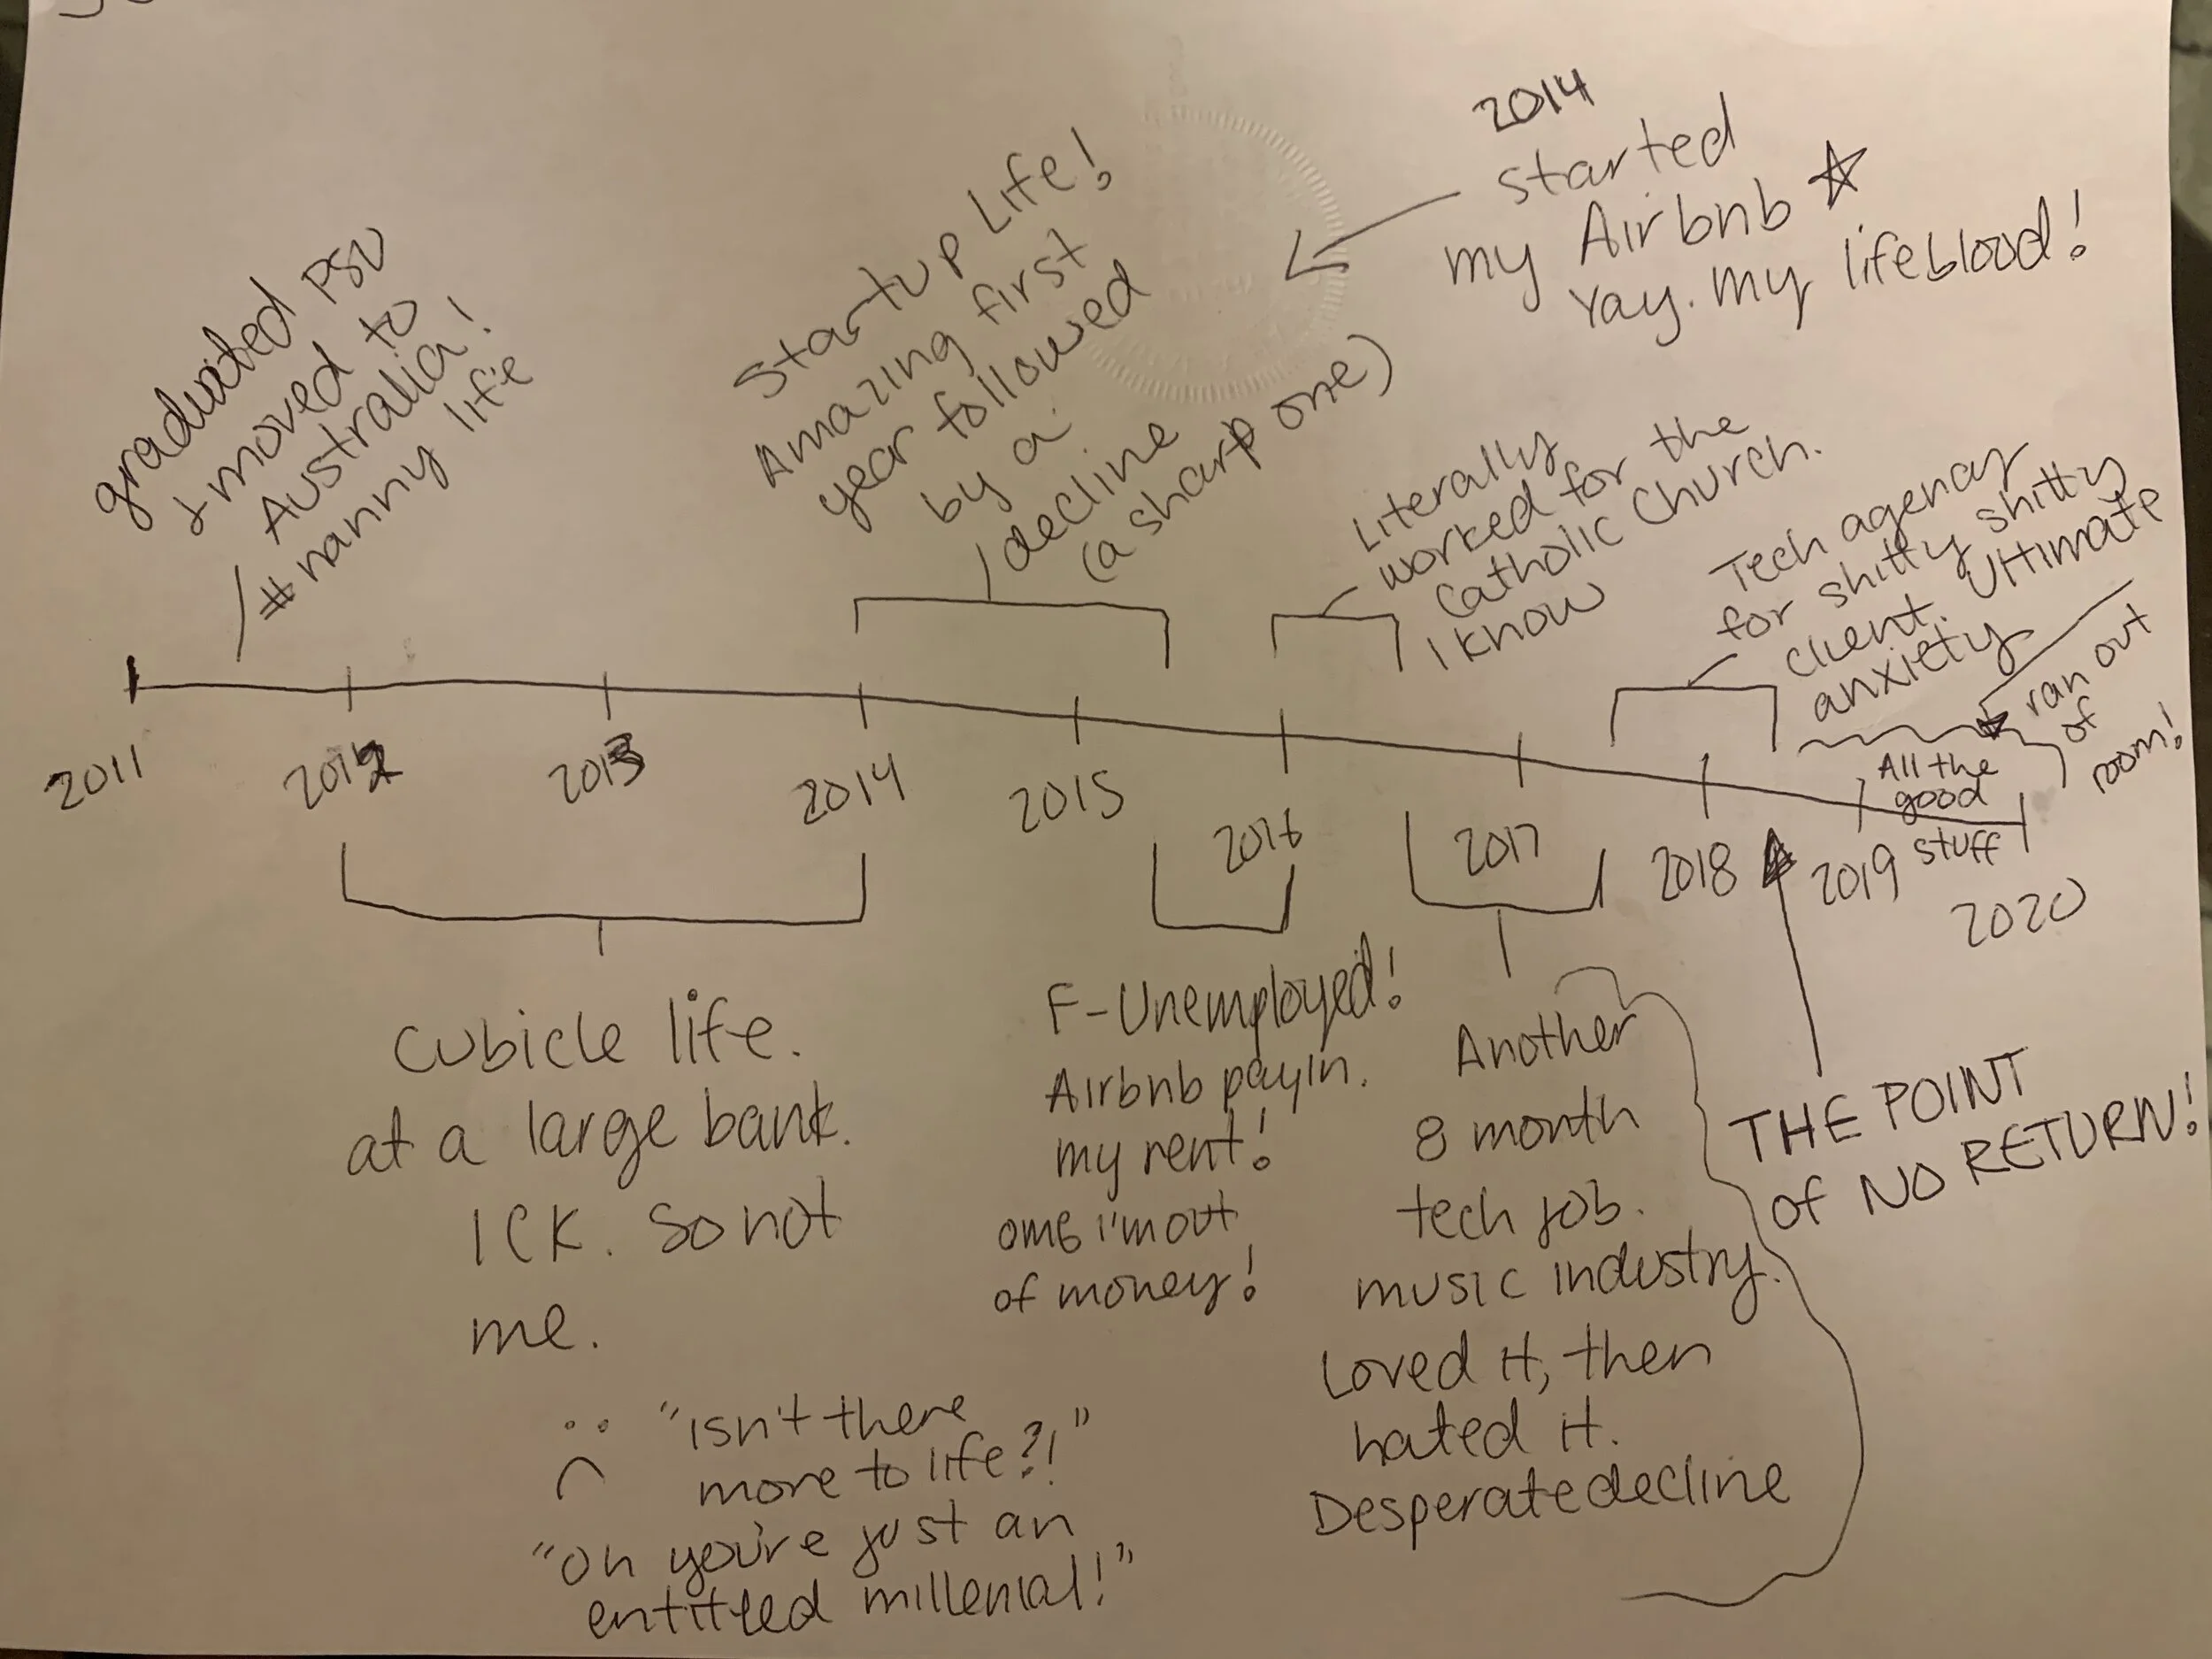 graduated PSU
+ moved to
Australia!
# nanny life
Startup Life!
Amazing first
year followed
by a
decline
(a sharp one)
2014
started
my Airbnb
Yay. My lifeblood!
Literally
worked for the
Catholic Church.
I know
Tech agency
for shitty shitty
client. Ultimate
anxiety
ran out
of
room!
All the
good
stuff
2011
2012
2013
2014
2015
2016
2017
2018
2019
2020
Cubicle life.
at a large bank.
ICK. So not
me.
"isn't there
more to life?!"
"Oh you're just an
entitled millenial!"
F-Unemployed!
Airbnb payin.
my rent!
OMG i'm out
of money!
Another
8 month
tech job.
music industry.
Loved it, then
hated it.
Desperate decline
THE POINT
of NO RETURN!